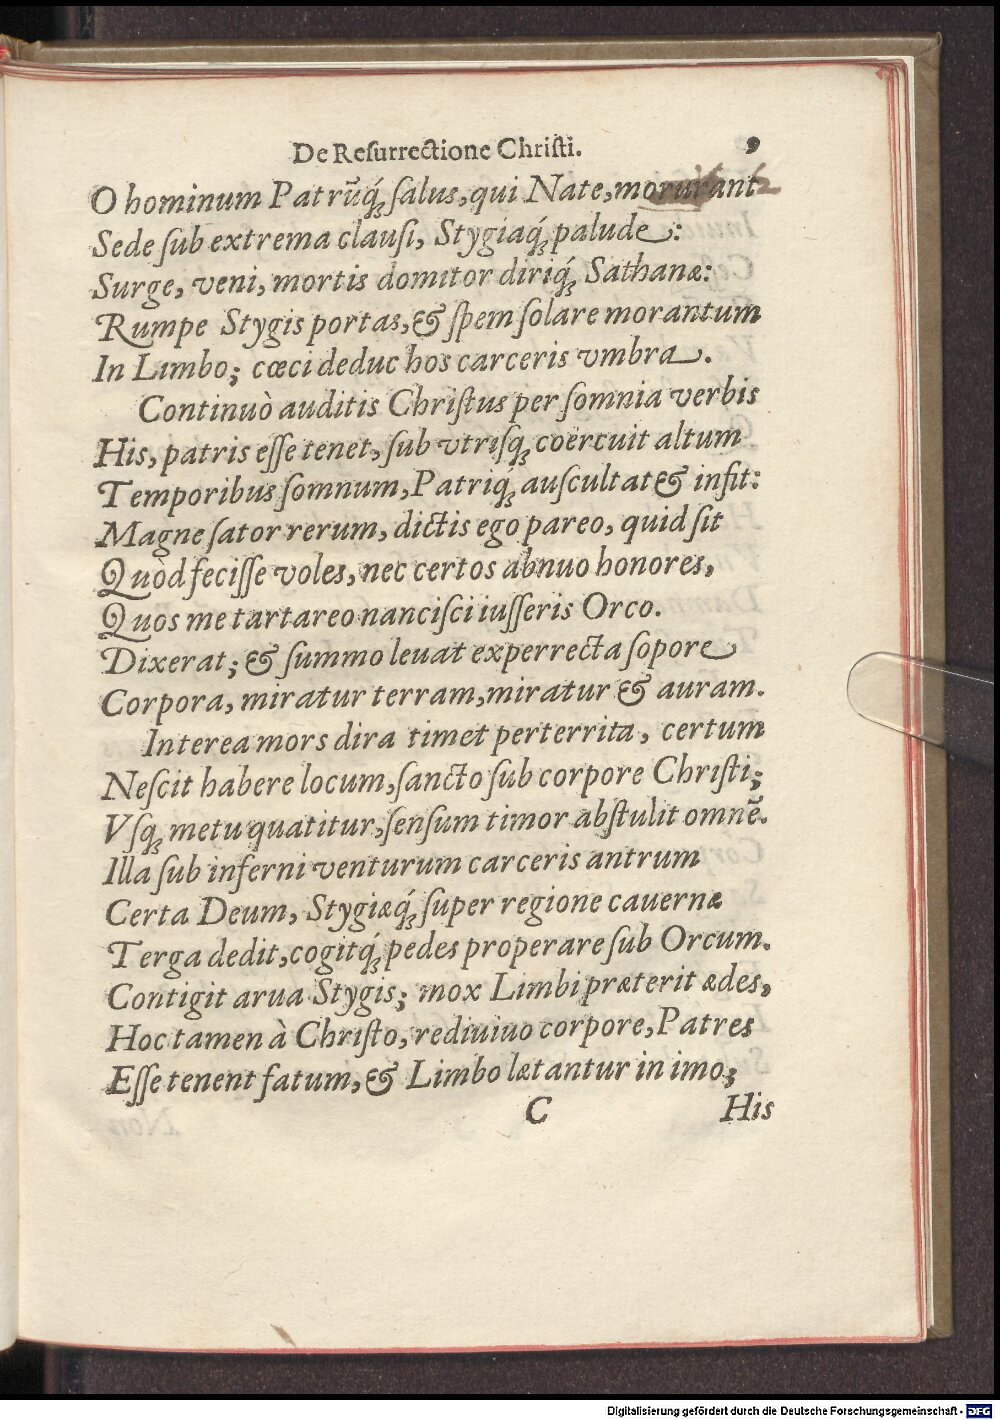 De Reſurrectione Chriſti. 9
O hominum Patrũq́ꝫ ſalus, qui Nate, morurant
Sede ſub extrema clauſi, Stygiaq́ꝫ palude:
Surge, veni, mortis domitor diriq́ꝫ Sathanæ:
Rumpe Stygis portas, & ſpem ſolare morantum
In Limbo; cœci deduc hos carceris vmbra.
Continuò auditis Chriſtus per ſomnia verbis
His, patris eſſe tenet, ſub vtriſqꝫ coërcuit altum
Temporibus ſomnum, Patriq́ꝫ auſcultat & infit:
Magne ſator rerum, dictis ego pareo, quid ſit
Quòd feciſſe voles, nec certos abnuo honores,
Quos me tartareo nanciſci iuſſeris Orco.
Dixerat; & ſummo leuat experrecta ſopore
Corpora, miratur terram, miratur & auram.
Interea mors dira timet perterrita, certum
Neſcit habere locum, ſancto ſub corpore Chriſti;
Vſqꝫ metu quatitur, ſenſum timor abſtulit omnẽ.
Illa ſub inferni venturum carceris antrum
Certa Deum, Stygiæq́ꝫ ſuper regione cauernæ
Terga dedit, cogitq́ꝫ pedes properare ſub Orcum.
Contigit arua Stygis; mox Limbi præterit ædes,
Hoc tamen à Chriſto, rediuiuo corpore, Patres
Eſſe tenent fatum, & Limbo lætantur in imo;
C His
Digitalisierung gefördert durch die Deutsche Forschungsgemeinschaft - DFG